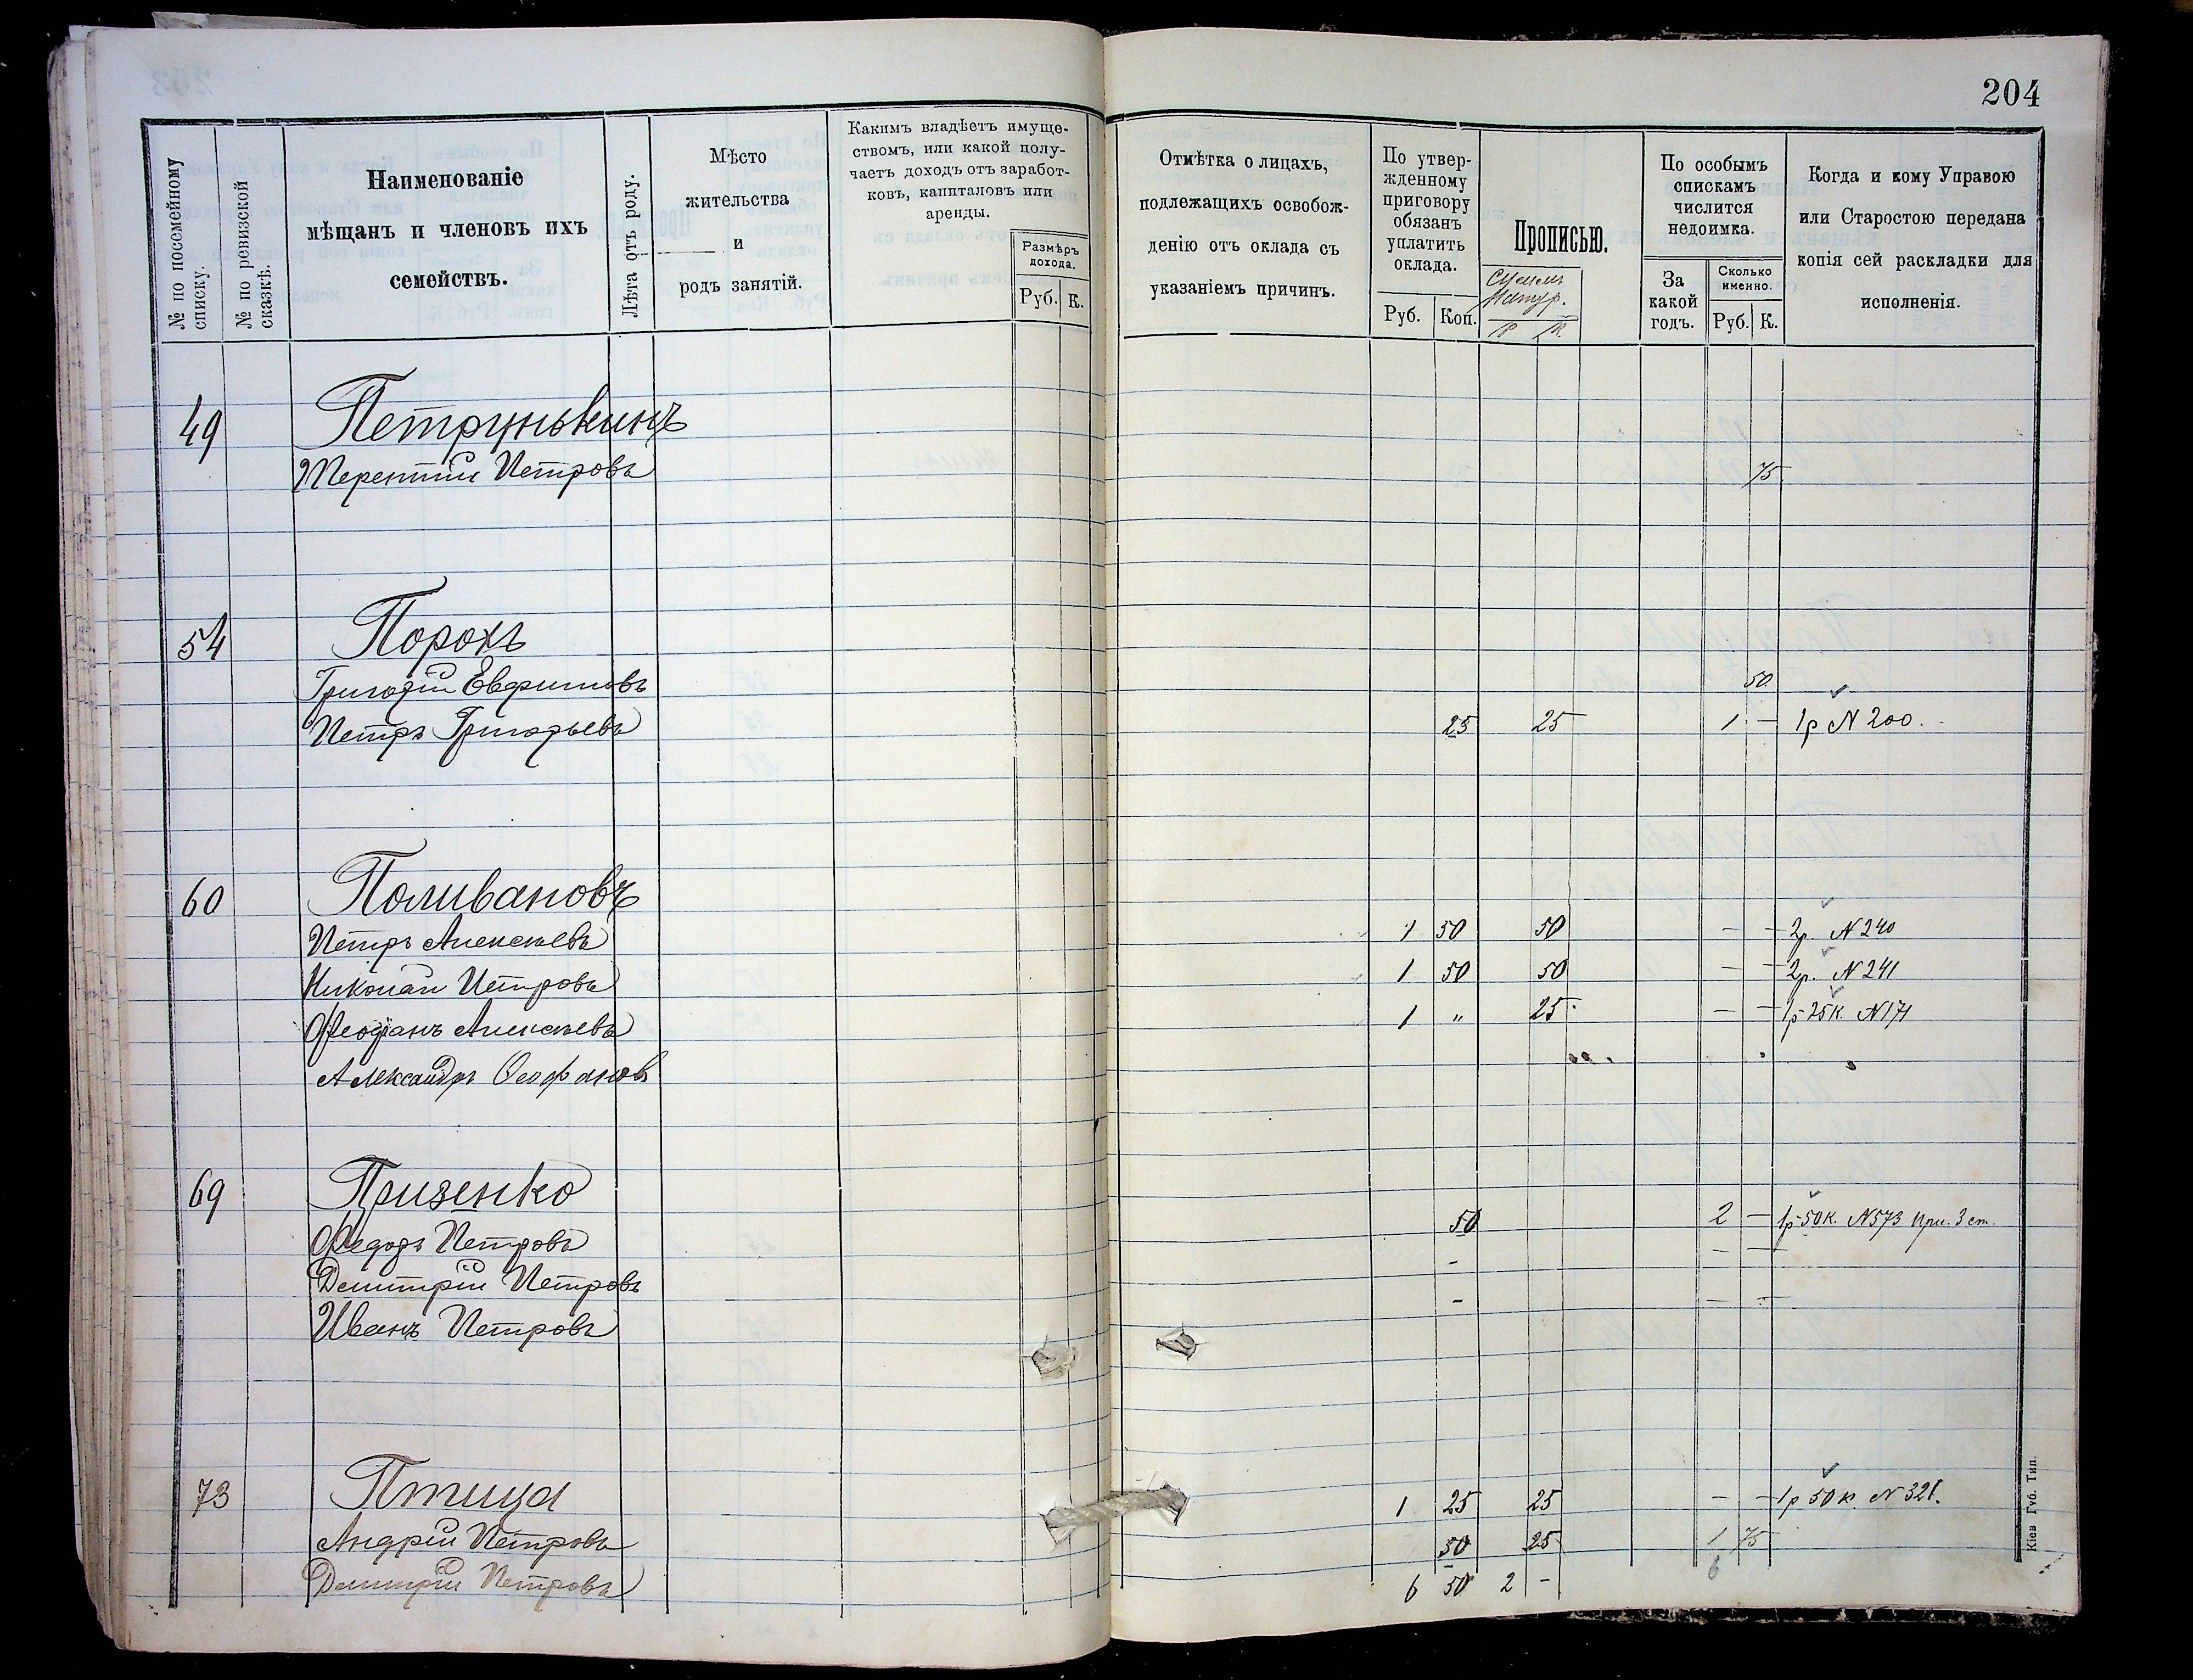 204
№ по посемейному списку.
№ по ревизской сказкѣ.
Наименованіе
мѣщанъ и членовъ ихъ
семействъ.
Лѣта отъ роду.
Мѣсто
жительства
и
родъ занятій.
Какимъ владѣетъ имуще-
ствомъ, или какой полу-
чаетъ доходъ отъ заработ-
ковъ, капиталовъ или
аренды.
Размѣръ
дохода.
Руб. К.
Отмѣтка о лицахъ,
подлежащихъ освобож-
денію отъ оклада съ
указаніемъ причинъ.
По утвер-
жденному
приговору
обязанъ
уплатить
оклада.
Руб. Коп.
Прописью.
По особымъ
спискамъ
числится
недоимка.
За
какой
годъ.
Сколько
именно.
Руб. К.
Когда и кому Управою
или Старостою передана
копія сей раскладки для
исполненія.
49 Петрунькинъ
Терентій Петровъ 75
54 Порохъ
Григорій Евфимовъ 50
Петръ Григорьевъ 25 25 1 — 1р N 200.
60 Поливановъ
Петръ Алексѣевъ 1 50 50 — — 2р. N 240
Николай Петровъ 1 50 50 — — 2р. N 241
Феофанъ Алексѣевъ 1 " 25 — — 1р 25к. N 171
Александръ Феофановъ
69 Призенко
Федоръ Петровъ 50 2 — 1р 50к. N 573 при. 3 ст.
Дмитрій Петровъ - — —
Иванъ Петровъ - — —
73 Птица
Андрій Петровъ 1 25 25 — — 1р 50к. N 321.
Дмитрій Петровъ 50 25 1 75
6 50 2 - 6
Кіев Губ. Тип.